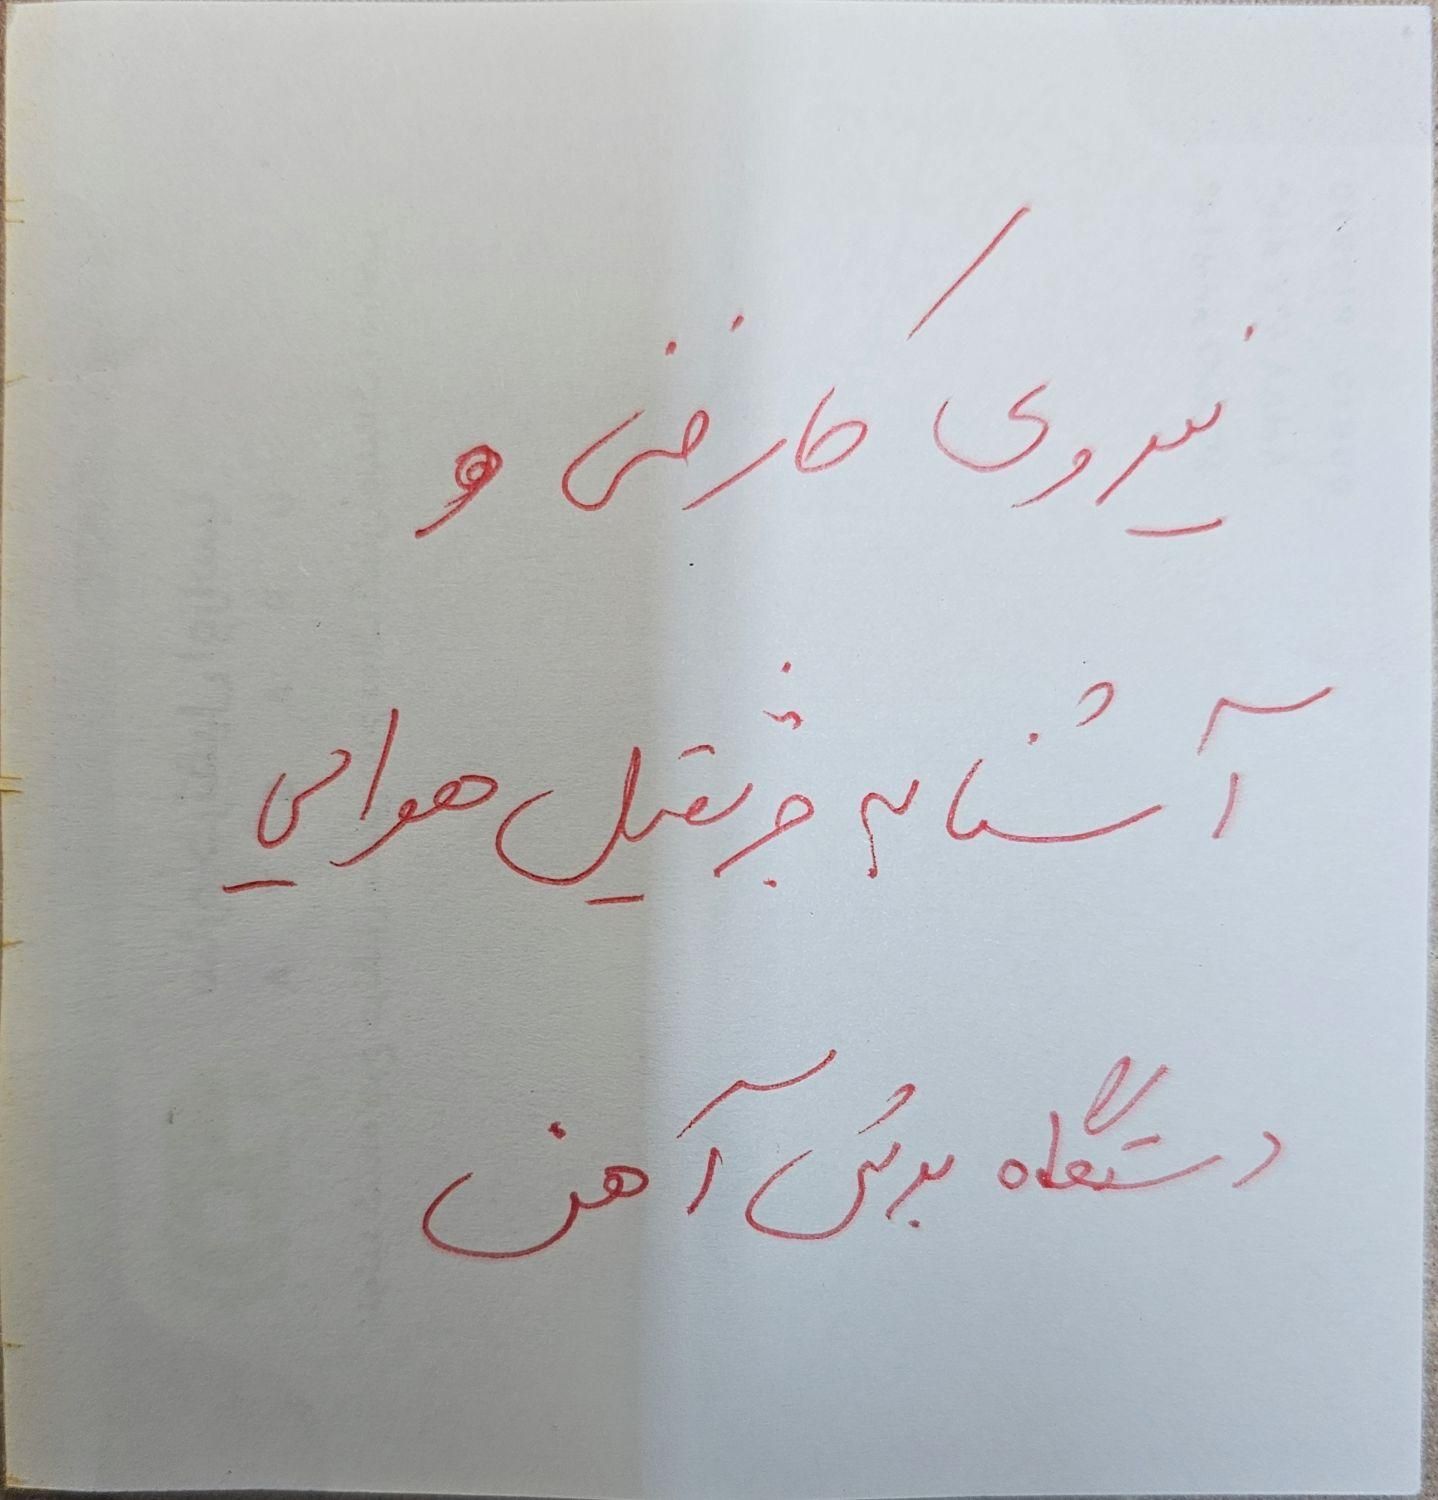 نیروی کار فنی و
آشنا به جرثقیل هوایی
دستگاه برش آهن